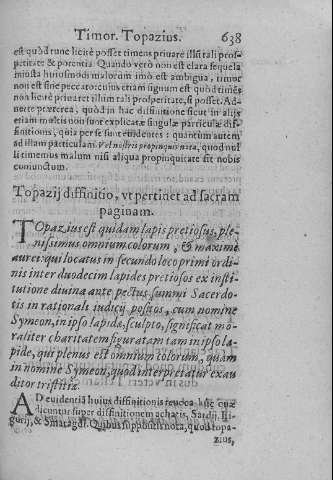 Timor. Topazius. 638
est quòd tunc licitè posset timens privare illũ tali pros-
peritate & potentia. Quando verò non est clara sequela
iniusta huiusmodi malorum imò est ambigua, timor
non est sine peccato: cuius etiam signum est quòd timẽs
non licitè privaret illum tali prosperitate, si posset. Ad-
verte præterea, quòd in hac diffinitione sicut in alijs
etiam multis non sunt explicatæ singulæ particulæ dif-
finitionis, quia per se sunt evidentes: quantum autem
ad illam particulam. Vel nostris propinquo nata, quod nul
li timemus malum nisi aliqua propinquitate sit nobis
coniunctum.
Topazij diffinitio, vt pertinet ad sacram
paginam.
TOpazius est quidam lapis pretiosus, ple-
nissimus omnium colorum, & maximè
aurei: qui locatus in secundo loco primi ordi-
nis inter duodecim lapides pretiosos ex insti-
tutione divina ante pectus summi Sacerdo-
tis in rationali iudicij positos, cum nomine
Symeon, in ipso lapide, sculpto, significat mo-
raliter charitatem figuratam tam in ipso la-
pide, qui plenus est omnium colorum, quàm
in nomine Symeon, quod interpretatur exau
ditor tristitiæ.
AD evidentiã huius diffinitionis revoca huc quæ
dicuntur super diffinitionem achatis, Sardij, Li-
gurij, & Smaragdi. Quibus suppositis nota, quòd topa-
zius,